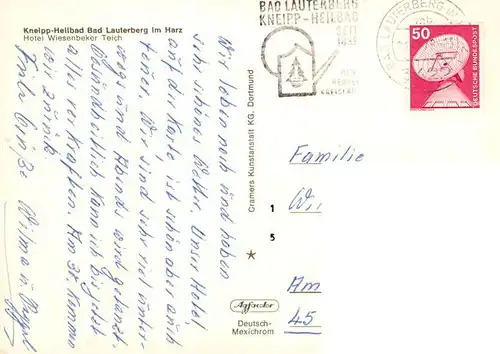 Kneipp-Heilbad Bad Lauterberg im Harz
Hotel Wiesenbeker Teich
Wir leben noch und haben
sehr schönes Wetter. Unser Hotel,
auf der Karte, ist schön aber auch
teuer. Wir sind sehr viel unter-
wegs und Abends wird getanzt.
Gesundheitlich kann ich bis jetzt
alles verkraften. Am 31. kommen
wir zurück
Viele Grüße Wilma u.
Cramers Kunstanstalt KG. Dortmund
Agfacolor
Deutsch-
Mexichrom
BAD LAUTERBERG
KNEIPP-HEILBAD
SEIT
1839
LAUTERBERG IM
50
DEUTSCHE BUNDESPOST
Familie
Wi
Am
45
1
5